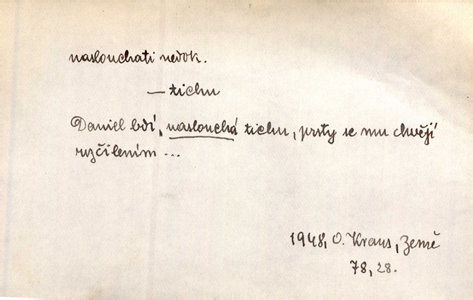 naslouchati nedok.
— tichu
Daniel bdí, naslouchá tichu, prsty se mu chvějí
rozčilením ...
1948, O. Kraus, Země
78, 28.